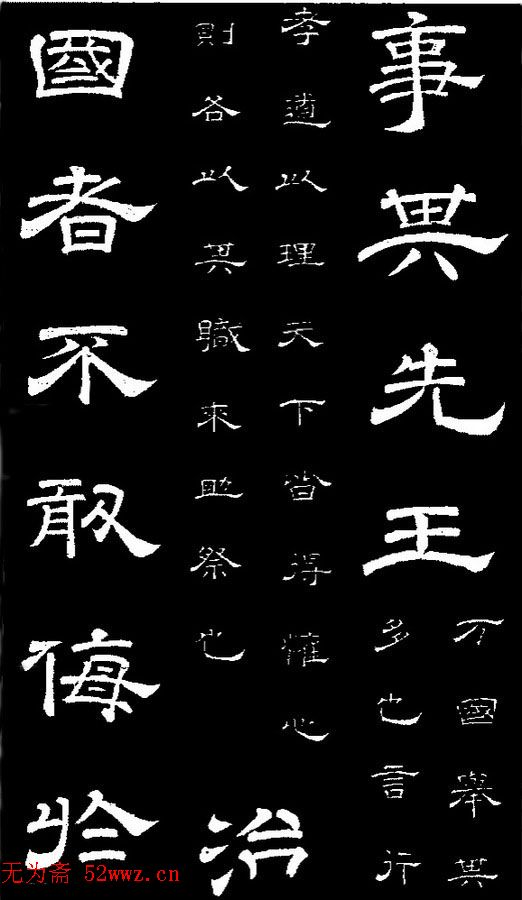 事其先王
万國舉其
多也言行
孝道以理天下皆得懽心
則各以其職來助祭也
治
國者不敢侮於
无为斋 52wwz.cn